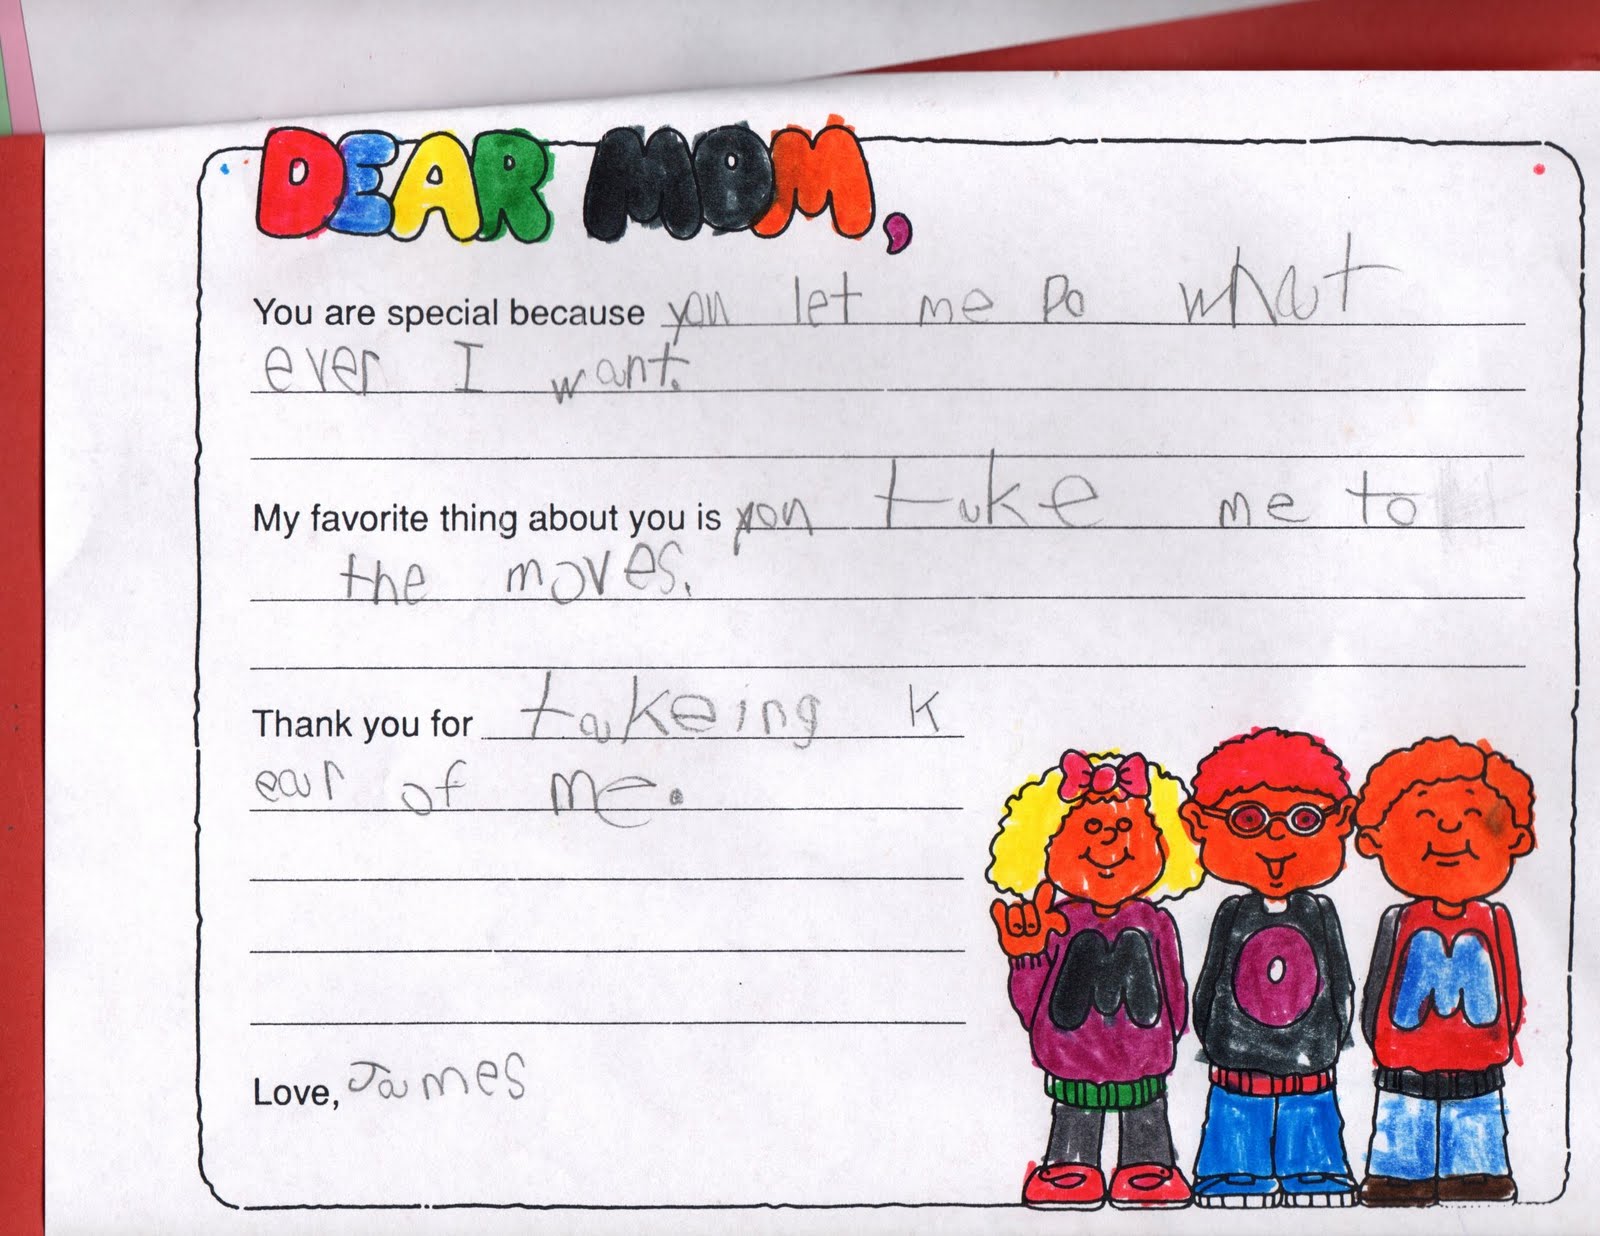 DEAR MOM,
You are special because you let me Do what
ever I want.
My favorite thing about you is you take me to
the moves.
Thank you for takeing k
ear of me.
Love, James
M O M